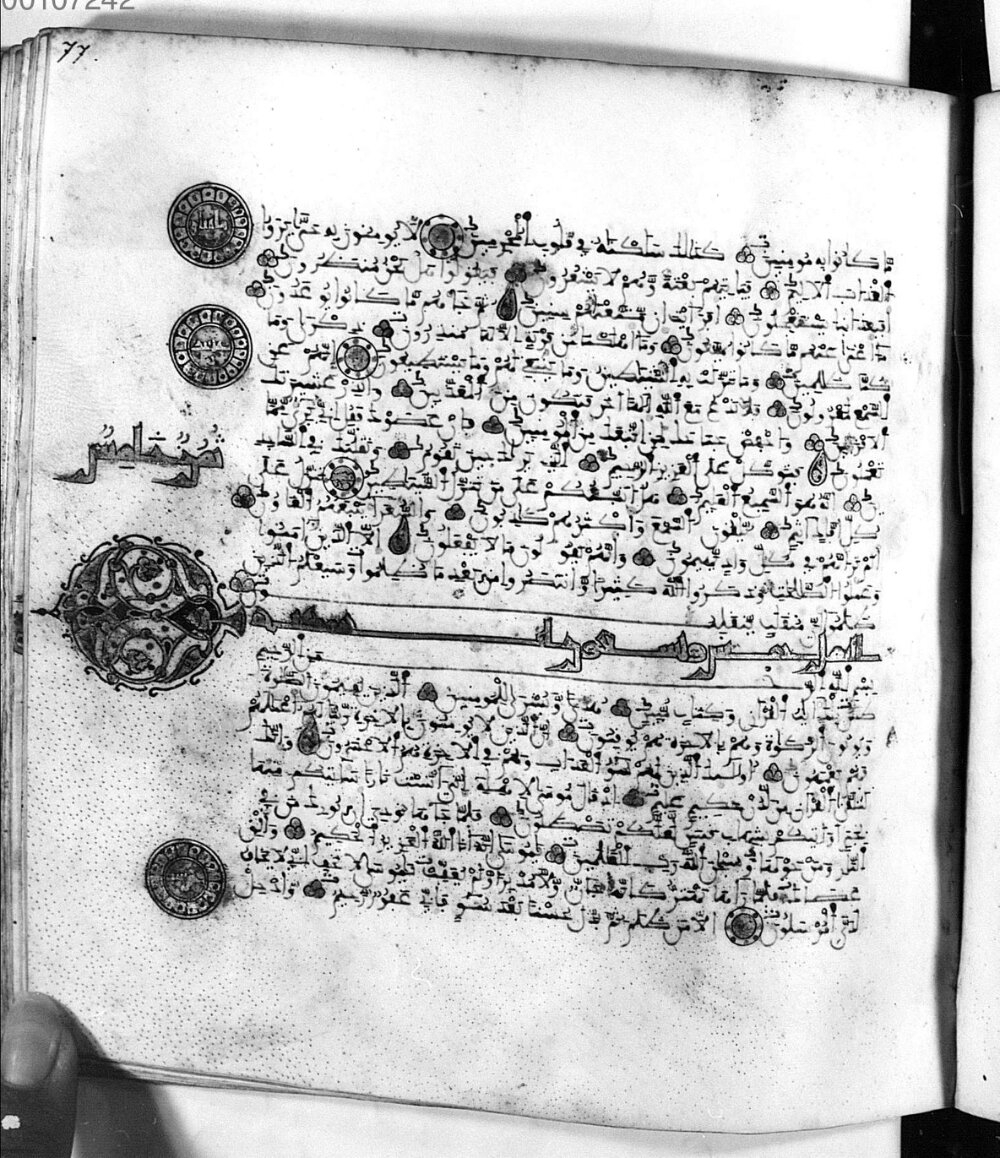 00107242
77.
ما كانوا به مومنين كذلك سلكنه في قلوب المجرمين لا يومنون به حتى يروا
العذاب الاليم فياتيهم بغتة وهم لا يشعرون فيقولوا هل نحن منظرون
افبعذابنا يستعجلون افرايت ان متعنهم سنين ثم جاءهم ما كانوا يوعدون
ما اغنى عنهم ما كانوا يمتعون وما اهلكنا من قرية الا لها منذرون ذكرى وما
كنا ظلمين وما تنزلت به الشيطين وما ينبغي لهم وما يستطيعون انهم عن
السمع لمعزولون فلا تدع مع الله الها اخر فتكون من المعذبين وانذر عشيرتك
الاقربين واخفض جناحك لمن اتبعك من المومنين فان عصوك فقل اني بريء مما
تعملون فتوكل على العزيز الرحيم الذي يريك حين تقوم وتقلبك في السجد
ين انه هو السميع العليم هل انبئكم على من تنزل الشيطين تنزل على
كل افاك اثيم يلقون السمع واكثرهم كذبون والشعراء يتبعهم الغاون
الم تر انهم في كل واد يهيمون وانهم يقولون ما لا يفعلون الا الذين امنوا
وعملوا الصلحت وذكروا الله كثيرا وانتصروا من بعد ما ظلموا وسيعلم الذين
ظلموا اي منقلب ينقلبون
النمل خمس وتسعون اية
بسم الله الرحمن الرحيم
طس تلك ايت القران وكتاب مبين هدى وبشرى للمومنين الذين يقيمون الصلوة
ويوتون الزكوة وهم بالاخرة هم يوقنون ان الذين لا يومنون بالاخرة زينا لهم اعملهم
فهم يعمهون اولئك الذين لهم سوء العذاب وهم في الاخرة هم الاخسرون وانك
لتلقى القران من لدن حكيم عليم اذ قال موسى لاهله اني انست نارا ساتيكم منها
بخبر او اتيكم بشهاب قبس لعلكم تصطلون فلما جاءها نودي ان بورك من في
النار ومن حولها وسبحن الله رب العلمين يموسى انه انا الله العزيز الحكيم والق
عصاك فلما راها تهتز كانها جان ولى مدبرا ولم يعقب يموسى لا تخف اني لا يخاف
لدي المرسلون الا من ظلم ثم بدل حسنا بعد سوء فاني غفور رحيم وادخل